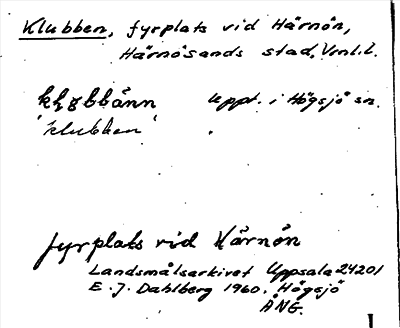 Klubben, fyrplats vid Härnön,
Härnösands stad, Vnl.l.
Uppt. i Högsjö sn.
'klubben'
fyrplats vid Härnön
Landsmålsarkivet Uppsala 24201
E. J. Dahlberg 1960. Högsjö
ÅNG.